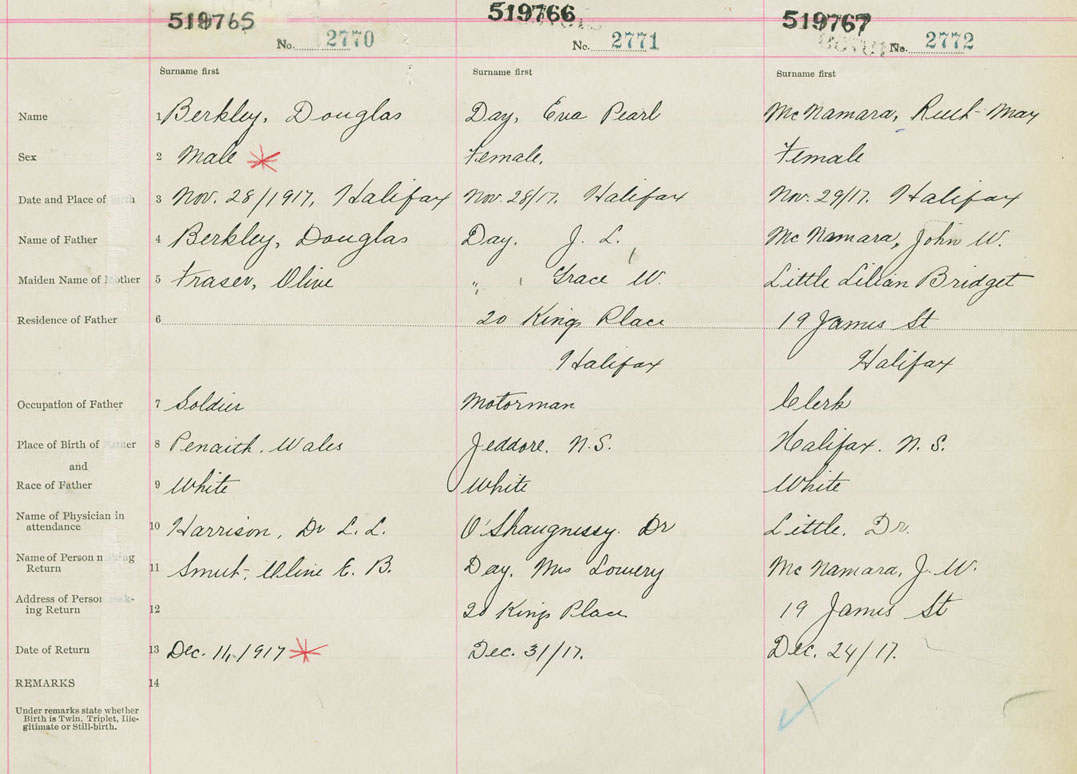 519765 519766 519767
No. 2770 No. 2771 No. 2772
Surname first Surname first Surname first
Name 1 Berkley, Douglas Day, Eva Pearl McNamara, Ruth May
Sex 2 Male Female. Female
Date and Place of Birth 3 Nov. 28/1917, Halifax Nov. 28/17. Halifax Nov. 29/17. Halifax
Name of Father 4 Berkley, Douglas Day. J. L. McNamara, John W.
Maiden Name of Mother 5 Fraser, Olive " Grace W. Little Lilian Bridget
Residence of Father 6 20 Kings Place 19 James St
Halifax Halifax
Occupation of Father 7 Soldier Motorman Clerk
Place of Birth of Father 8 Wales Jeddore. N.S. Halifax. N.S.
and
Race of Father 9 White White White
Name of Physician in
attendance 10 Harrison, Dr L. L. O'Shaugnessy. Dr Little. Dr.
Name of Person making
Return 11 E. B. Day, Mrs Lowery McNamara, J. W.
Address of Person mak-
ing Return 12 20 Kings Place 19 James St
Date of Return 13 Dec. 11, 1917 Dec. 31/17. Dec. 24/17.
REMARKS 14
Under remarks state whether
Birth is Twin, Triplet, Ille-
gitimate or Still-birth.